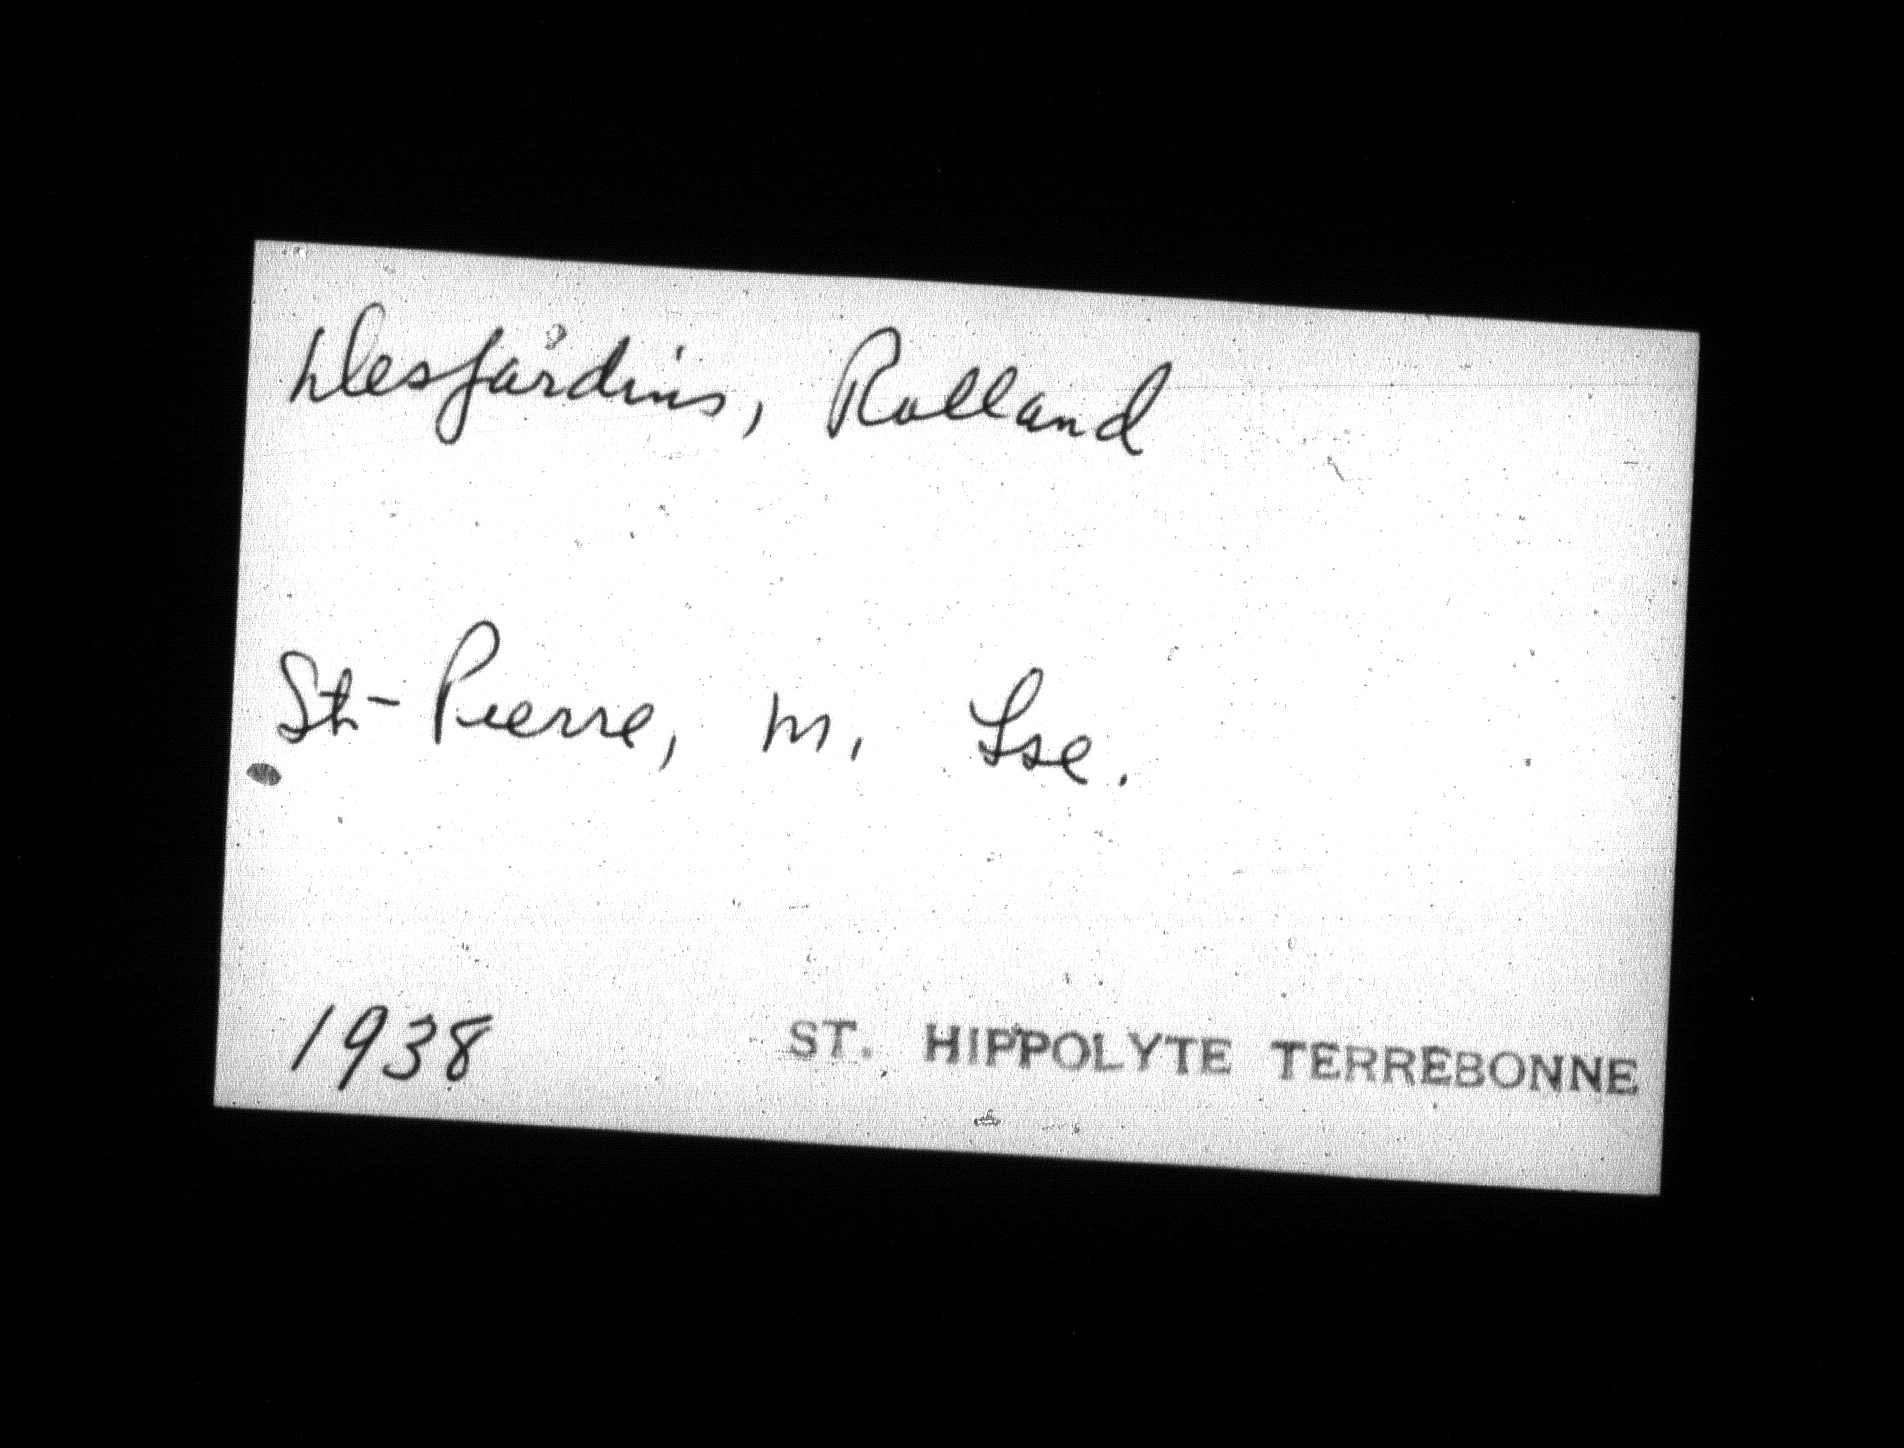 Desjardins, Rolland
St-Pierre, M. Lse.
1938 ST. HIPPOLYTE TERREBONNE